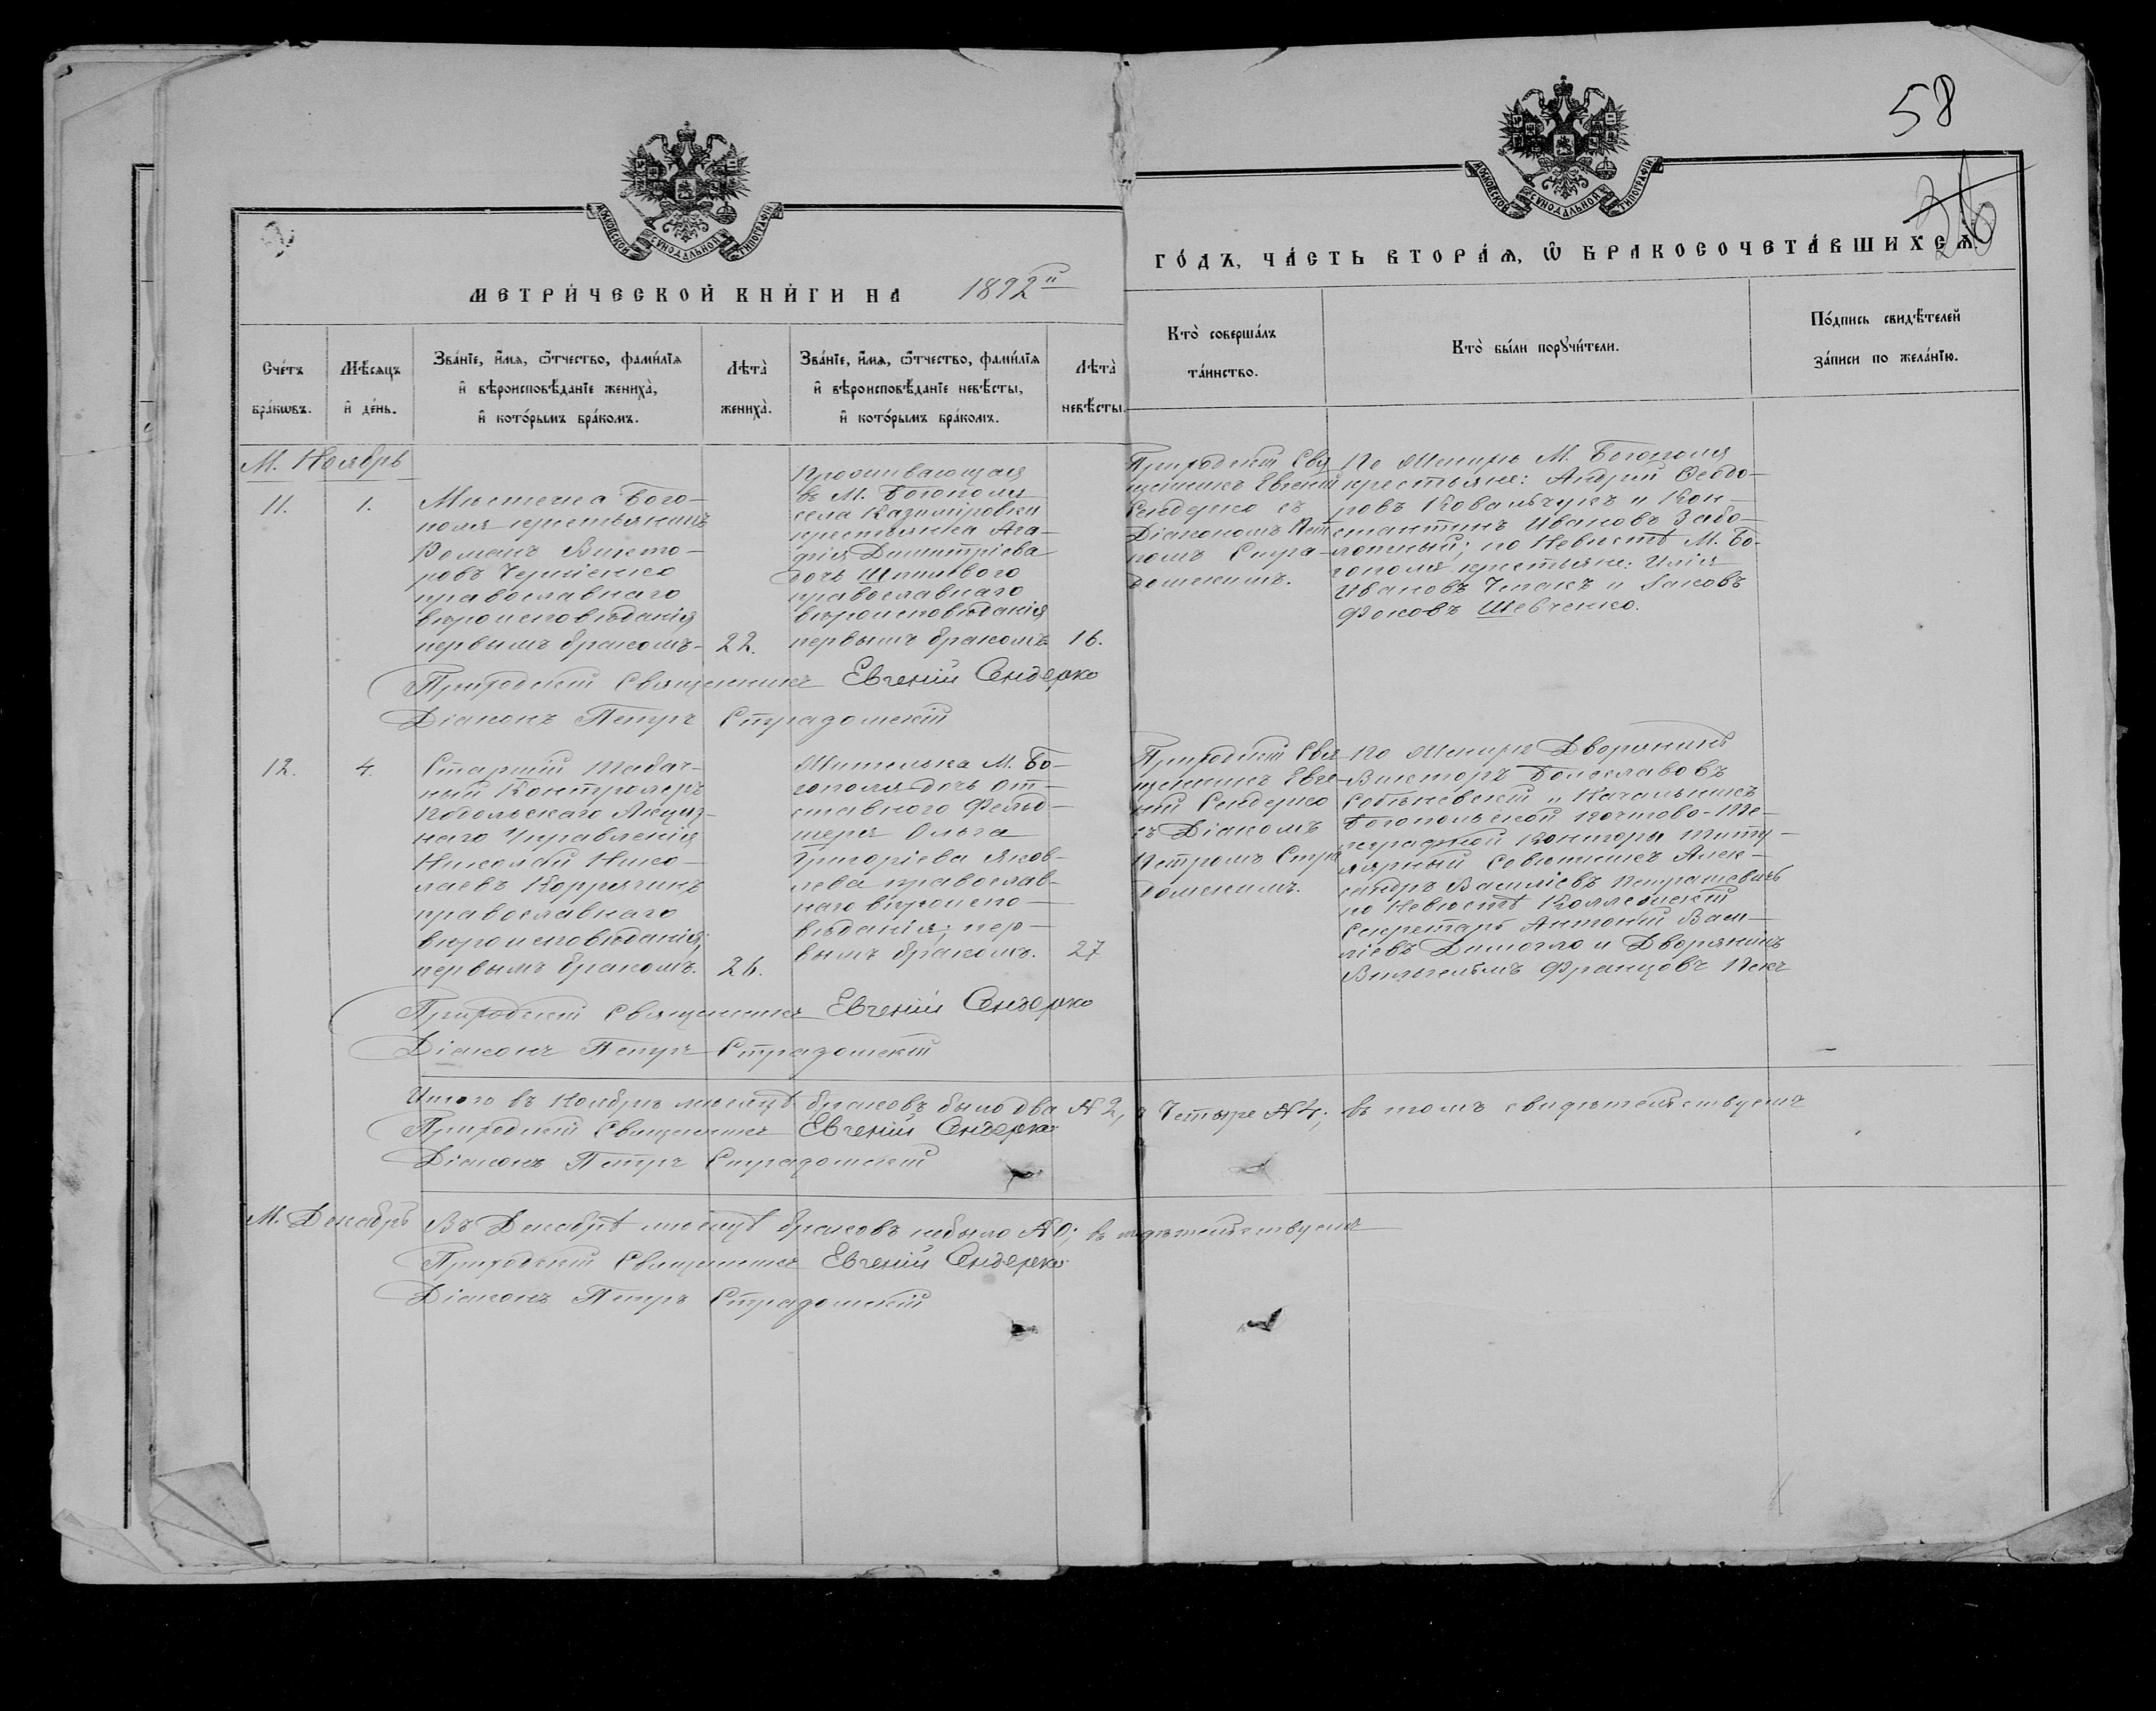 58
МОСКОВСКОЙ СѴНОДАЛЬНОЙ ТИПОГРАФІИ
МОСКОВСКОЙ СѴНОДАЛЬНОЙ ТИПОГРАФІИ
МЕТРИ́ЧЕСКОЙ КНИ́ГИ НА 1892й
ГО́ДЪ, ЧА́СТЬ ВТОРА́Ѧ, Ѽ БРАКОСОЧЕТА́ВШИХСѦ.
Сче́тъ
бра́кѡвъ.
Мѣ́сяцъ
и҆ де́нь.
Зва́нїе, и҆́мѧ, ѻ҆́тчество, фами́лїѧ
и҆ вѣроисповѣ́данїе жениха̀,
и҆ кото́рымъ бра́комъ.
Лѣта̀
жениха̀.
Зва́нїе, и҆́мѧ, ѻ҆́тчество, фами́лїѧ
и҆ вѣроисповѣ́данїе невѣ́сты,
и҆ кото́рымъ бра́комъ.
Лѣта̀
невѣ́сты.
Кто̀ соверша́лъ
та́инство.
Кто̀ бы́ли порꙋчи́тели.
По́дпись свидѣ́телей
за́писи по жела́нїю.
М. Ноябрь
11.
1.
Мѣстечка Бого-
поля крестьянинъ
Романъ Викто-
ровъ Черніенко
православнаго
вѣроисповѣданія
первымъ бракомъ-
22.
Проживающая
въ М. Богополѣ
села Казиміровки
крестьянка Ага-
фія Димитріева
дочь
православнаго
вѣроисповѣданія
первымъ бракомъ
16.
Приходскій Свя
щенникъ Евгеній
Сендерко съ
Діакономъ Пет
ромъ Стра-
домскимъ.
По Женихѣ М. Богополя
крестьяне: Андрей Ѳеодо-
ровъ Ковальчукъ и Кон-
стантинъ Ивановъ Забо-
лотный; по Невѣстѣ М. Бо-
гополя крестьяне: Илія
Ивановъ Чепакъ и Іаковъ
Фоковъ Шевченко.
Приходскій Священникъ Евгеній Сендерко
Діаконъ Петръ Страдомскій
12.
4.
Старшій Табач-
ный Контролеръ
Подольскаго Акциз-
наго Управленія
Николай Нико-
лаевъ Коррягинъ
православнаго
вѣроисповѣданія;
первымъ бракомъ.
26.
Жителька М. Бо-
гополя дочь от-
ставного Фельд-
шера Ольга
Григоріева Яков-
лева православ-
наго вѣроиспо-
вѣданія; пер-
вымъ бракомъ.
27
Приходскій Свя
щенникъ Евге-
ній Сендерко
съ Діакомъ
Петромъ Стра
домскимъ.
По Женихѣ Дворянинъ
Викторъ Болеславовъ
Собѣневскій и Начальникъ
Богопольской Почтово-Те-
леграфной Конторы Титу-
лярный Совѣтникъ Алек-
сандръ Василіевъ Петрашевичъ
по Невѣстѣ Коллежскій
Секретарь Антоній Васи-
ліевъ Димогло и Дворянинъ
Вильгельмъ Францовъ
Приходскій Священникъ Евгеній Сендерко
Діаконъ Петръ Страдомскій
Итого въ Ноябрѣ мѣсяцѣ браковъ было два № 2, а Четыре № 4; въ томъ свидѣтельствуемъ
Приходскій Священникъ Евгеній Сендерко
Діаконъ Петръ Страдомскій
М. Декабрь
Въ Декабрѣ мѣсяцѣ браковъ небыло № 0; въ
Приходскій Священникъ Евгеній Сендерко
Діаконъ Петръ Страдомскій